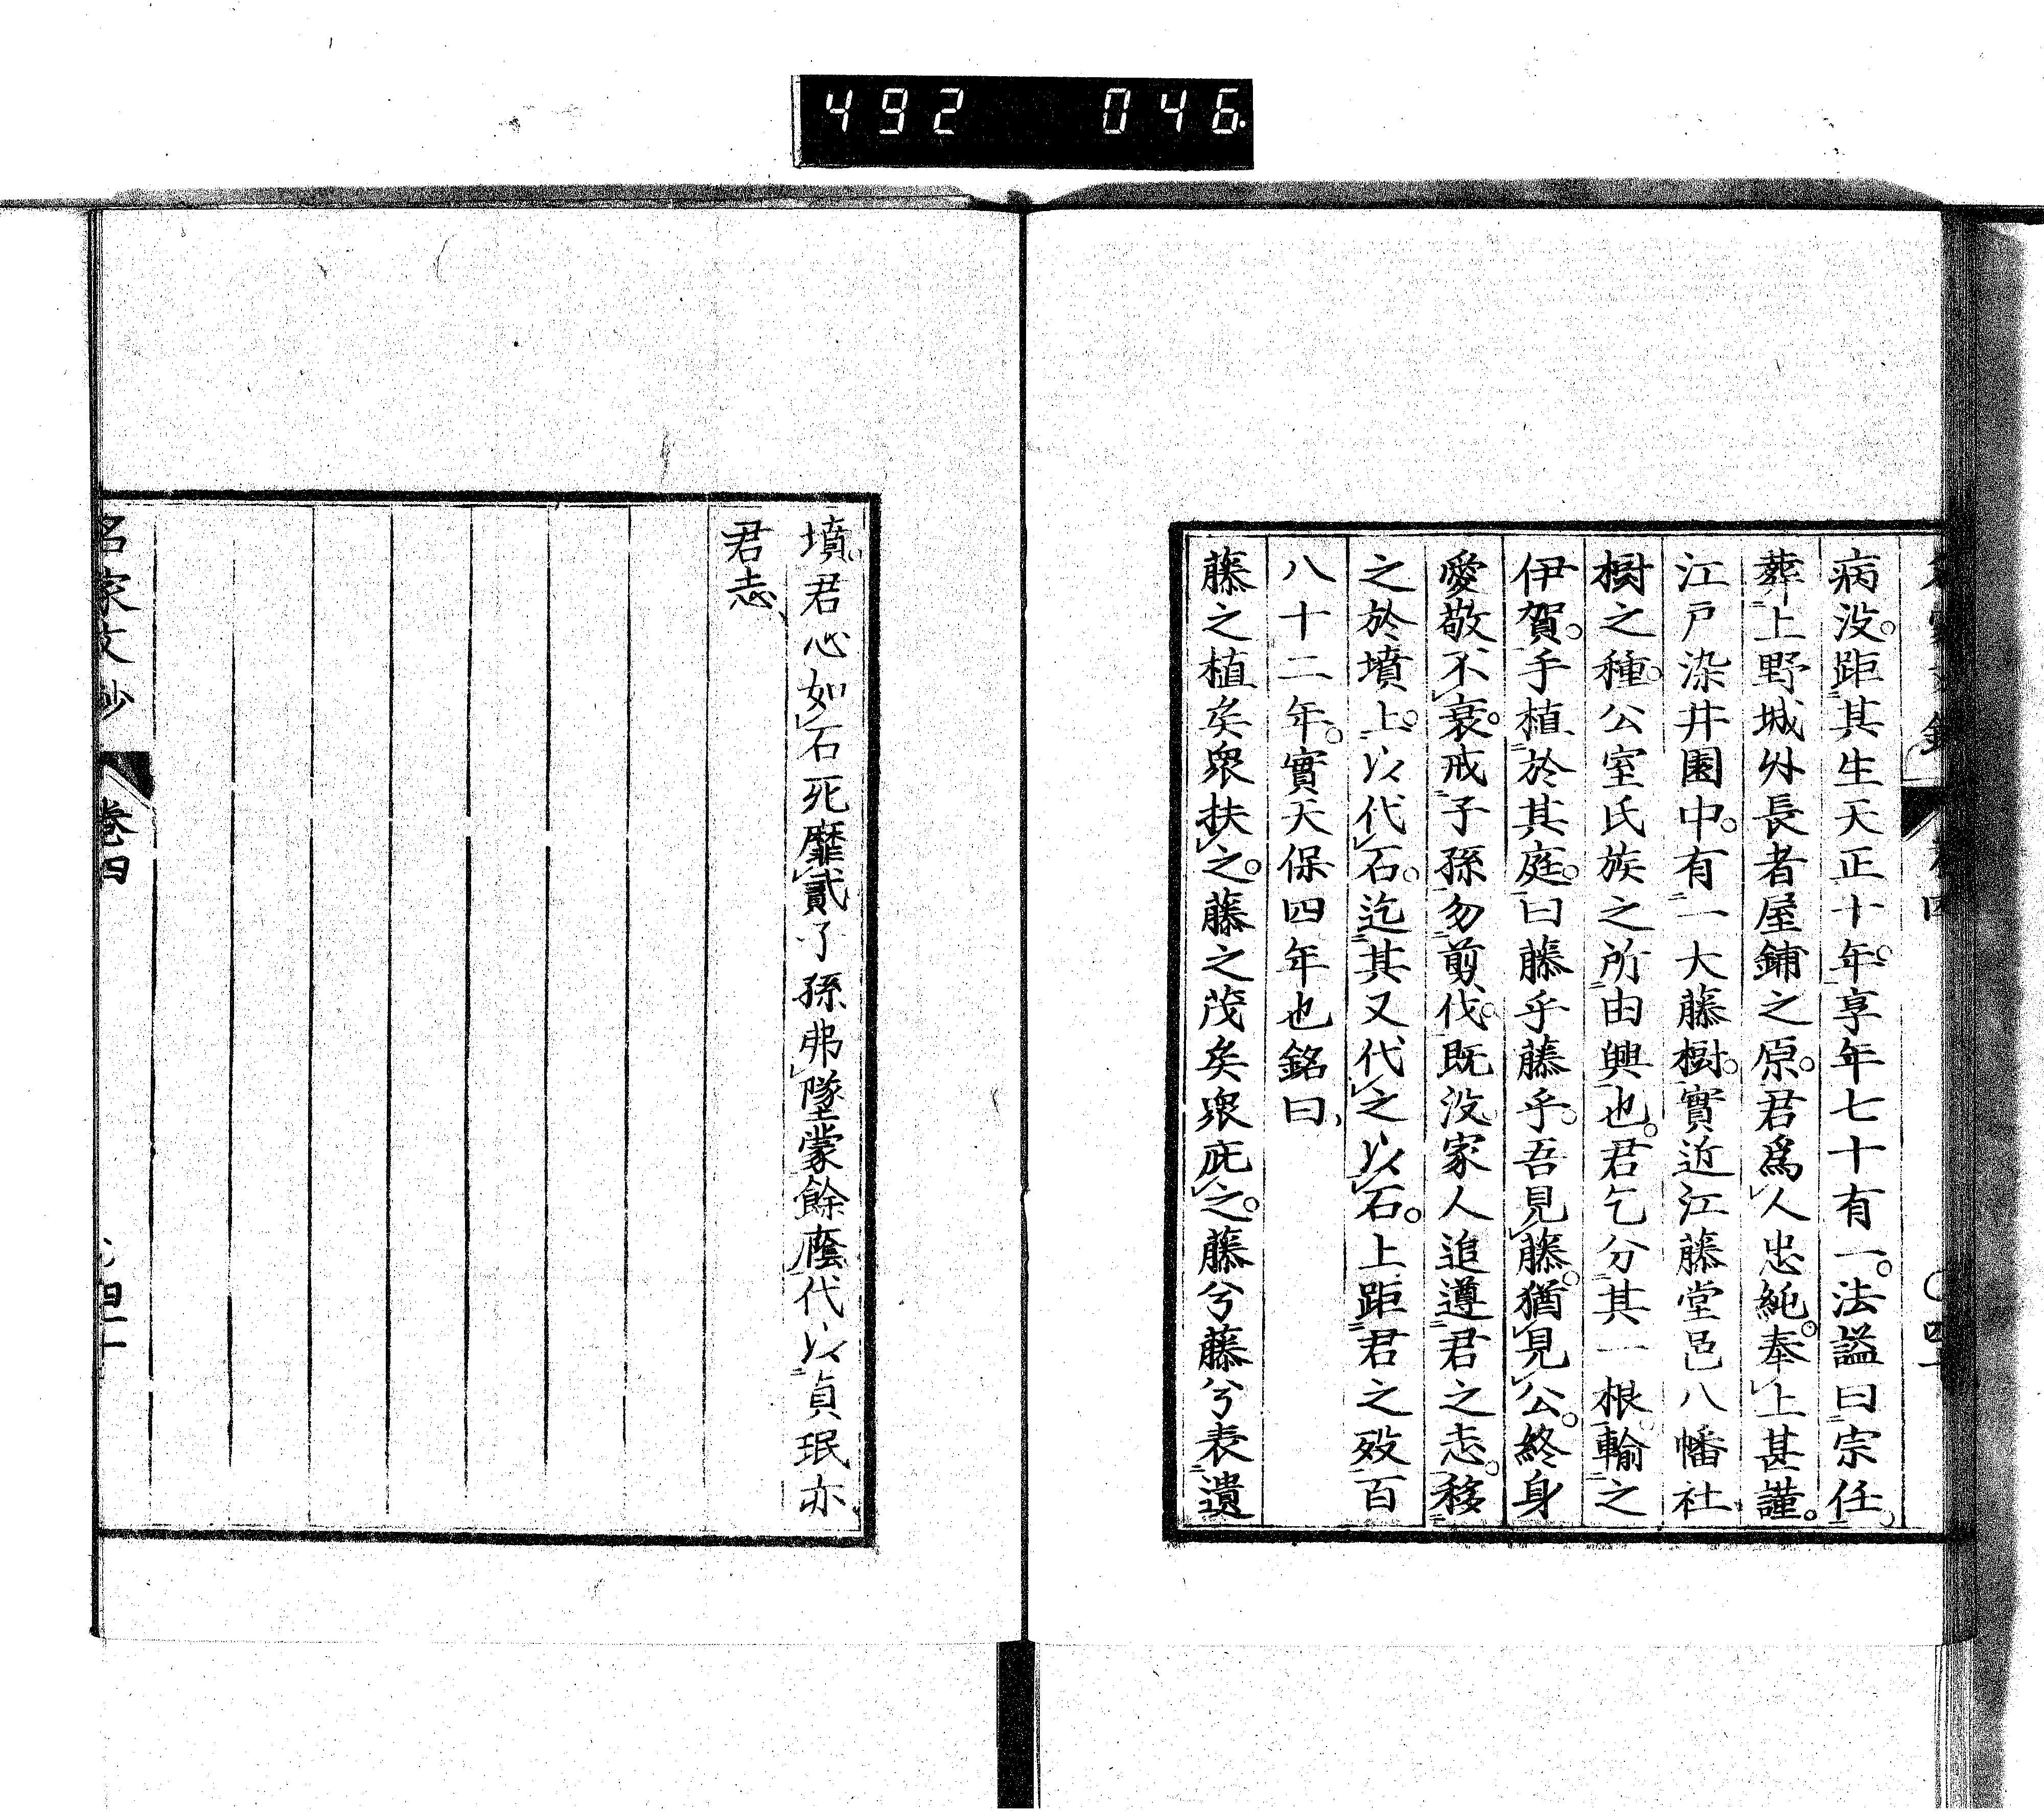 492 046
病没。距其生天正十年。享年七十有一。法謚曰宗任。
葬上野城外長者屋鋪之原。君爲人忠純。奉上甚謹。
江戸染井園中。有一大藤樹。實近江藤堂邑八幡社
樹之種。公室氏族之所由興也。君乞分其一根。輸之
伊賀。手植於其庭。曰藤乎藤乎。吾見藤。猶見公。終身
愛敬不衰。戒子孫勿剪伐。既没家人追遵君之志。移
之於墳上。以代石。迄其又代之以石。上距君之殁百
八十二年。實天保四年也銘曰、
藤之植矣衆扶之。藤之茂矣衆庇之。藤兮藤兮表遺
墳。君心如石死靡貳了孫弗墜蒙餘蔭代以貞珉亦
君志、
名家文鈔 卷四